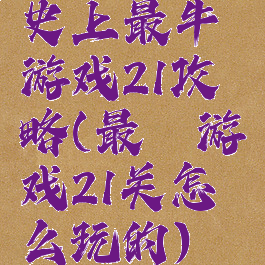 史上最牛
游戏21攻
略(最 游
戏21关怎
么玩的)